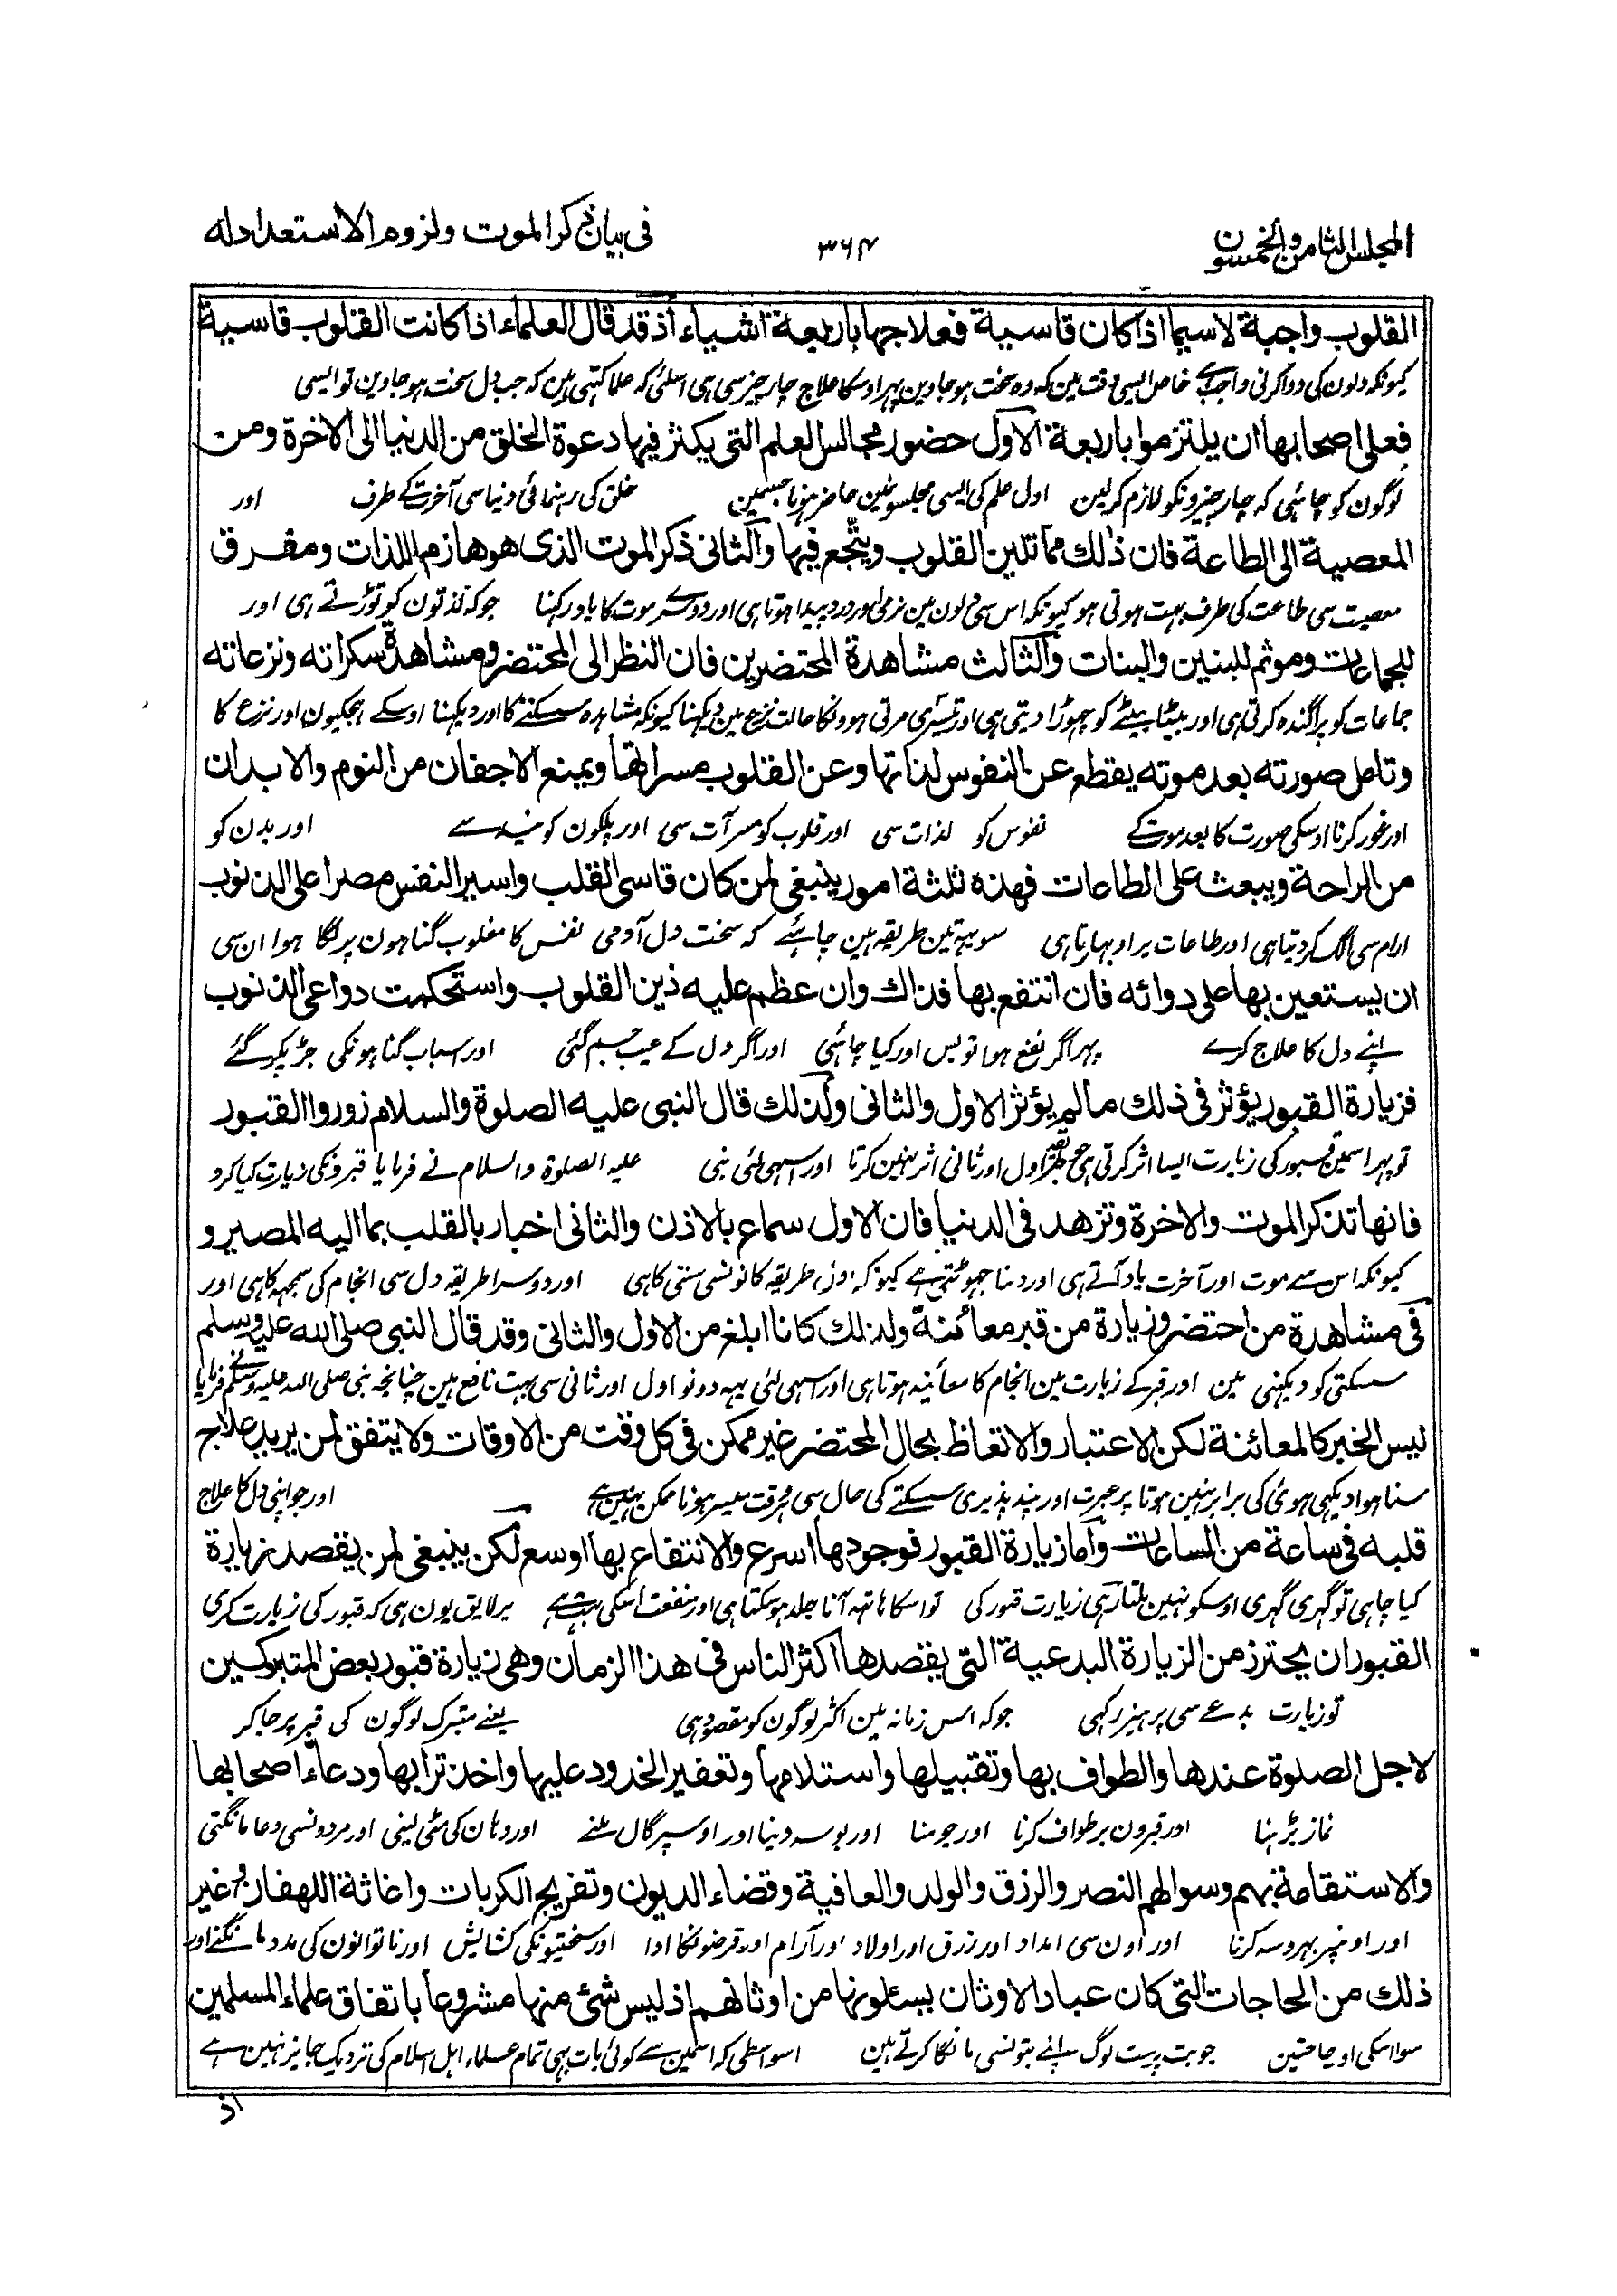 المجلس الثامن والخمسون
۳۶۴
فی بیان ذکر الموت ولزوم الاستعداد له
القلوب واجبة لاسیما اذا کان قاسیة فعلاجها باربعة اشیاء اذ قد قال العلماء اذا کانت القلوب قاسیة
کیونکہ دلون کی دوا کرنی واجب ہے خاص ایسی وقت مین کہ وہ سخت ہو جاوین پہر اوسکا علاج چار چیز سی ہی اسلئی کہ علما کہتی ہین کہ جب دل سخت ہو جاوین تو ایسی
فعلی اصحابها ان یلتزموا باربعة الاول حضور مجالس العلم التی یکثر فیها دعوة الخلق من الدنیا الی الاخرة ومن
لوگون کو چاہئی کہ چار چیزونکو لازم کر لین اول علم کی ایسی مجلسونمین حاضر ہونا جسمین خلق کی رہنمائی دنیا سی آخرت کے طرف اور
المعصیة الی الطاعة فان ذلك مما تلین القلوب وینجع فیها والثانی ذکر الموت الذی هو هازم اللذات ومفرق
معصیت سی طاعت کی طرف بہت ہوتی ہو کیونکہ اس سی دلون مین نرمی اور درد پیدا ہوتا ہی اور دوسرے موت کا یاد رکہنا جو کہ لذتون کو توڑتے ہی اور
للجماعات وموتم للبنین والبنات والثالث مشاهدة المحتضرین فان النظر الی المحتضر ومشاهدة سکراته ونزعاته
جماعات کو پراگندہ کرتی ہی اور بیٹا بیٹے کو چہوڑا دیتی ہی اور تیسری مرتی ہوونکا حالت نزع مین دیکہنا کیونکہ مشاہدہ سسکنے کا اور دیکہنا اوسکے ہچکیون اور نزع کا
وتامل صورته بعد موته یقطع عن النفوس لذاتها وعن القلوب مسراتها ویمنع الاجفان من النوم والابدان
اور غور کرنا اوسکی صورت کا بعد موت کے نفوس کو لذات سی اور قلوب کو مسرآت سی اور پلکون کو نیند سے اور بدن کو
من الراحة ویبعث علی الطاعات فهذه ثلثة امور ینبغی لمن کان قاسی القلب واسیر النفس مصرا علی الذنوب
ارام سی الگ کر دیتا ہی اور طاعات پر اوبہارتا ہی سو یہہ تین طریقہ ہین چاہئے کہ سخت دل آدمی نفس کا مغلوب گناہون پر لگا ہوا ان سی
ان یستعین بها علی دوائه فان انتفع بها فذاك وان عظم علیه ذین القلوب واستحکمت دواعی الذنوب
اپنے دل کا علاج کرے پہر اگر نفع ہوا تو بس اور کیا چاہئی اور اگر دل کے عیب جم گئی اور اسباب گناہونکی جڑ پکڑ گئے
فزیارة القبور یؤثر فی ذلك ما لم یؤثر الاول والثانی ولذلك قال النبی علیه الصلوة والسلام زوروا القبور
تو پہر اسمین قبور کی زیارت ایسا اثر کرتی ہی اول اور ثانی اثر نہین کرتا اور اسہی لئی نبی علیہ الصلوة والسلام نے فرمایا قبرونکی زیارت کیا کرو
فانها تذکر الموت والاخرة وتزهد فی الدنیا فان الاول سماع بالاذن والثانی اخبار بالقلب بما الیه المصیر و
کیونکہ اس سے موت اور آخرت یاد آتے ہی اور دنیا چہوٹتی ہے کیونکہ اول طریقہ کانونسی سنتی کا ہی اور دوسرا طریقہ دل سی انجام کی سمجہہ کا ہی اور
فی مشاهدة من احتضر وزیارة من قبر معائنة ولذلك کانا ابلغ من الاول والثانی وقد قال النبی صلی الله علیه وسلم
سسکتی کو دیکہنی مین اور قبر کے زیارت مین انجام کا معائنہ ہوتا ہی اور اسہی لئی یہہ دونو اول اور ثانی سی بہت نافع ہین چنانچہ نبی صلی اللہ علیہ وسلم نے فرمایا
لیس الخبر کالمعائنة لکن الاعتبار والاتعاظ بحال المحتضر غیر ممکن فی کل وقت من الاوقات ولا یتفق لمن یرید علاج
سنا ہوا دیکہی ہوئی کی برابر نہین ہوتا پر عبرت اور پند پذیری سسکتے کی حال سی ہر وقت میسر ہونا ممکن نہین ہے اور جو اپنی دل کا علاج
قلبه فی ساعة من الساعات واما زیارة القبور فوجودها اسرع والانتفاع بها اوسع لکن ینبغی لمن یقصد زیارة
کیا چاہی تو گہری گہری اوسکو نہین ملتا رہی زیارت قبور کی تو اسکا ہاتہہ آنا جلد ہو سکتا ہی اور منفعت اسکی بہت ہے پر لایق یون ہی کہ قبور کی زیارت کری
القبور ان یحترز من الزیارة البدعیة التی یقصدها اکثر الناس فی هذا الزمان وهی زیارة قبور بعض المتبرکین
تو زیارت بدعے سی پرہیز رکہی جو کہ اس زمانہ مین اکثر لوگون کو مقصود ہی یعنے متبرک لوگون کی قبر پر جا کر
لاجل الصلوة عندها والطواف بها وتقبیلها واستلامها وتعفیر الخدود علیها واخذ ترابها ودعاء اصحابها
نماز پڑہنا اور قبرون پر طواف کرنا اور چومنا اور بوسہ دینا اور اوسپر گال ملنے اور وہان کی مٹی لینی اور مردونسی دعا مانگتی
والاستقامة بهم وسوالهم النصر والرزق والولد والعافیة وقضاء الدیون وتفریج الکربات واغاثة اللهفان وغیر
اور اونپر بہروسہ کرنا اور اون سی امداد اور زرق اور اولاد اور آرام اور قرضونکا ادا اور سختیونکی کشایش اور ناتوانون کی مدد مانگنے اور
ذلك من الحاجات التی کان عباد الاوثان یسئلونها من اوثانهم اذ لیس شئ منها مشروعا باتفاق علماء المسلمین
سوا اسکی او حاجتین جو بت پرست لوگ اپنے بتونسی مانگا کرتے ہین اسواسطی کہ اسمین سے کوئی بات بہی تمام علماء اہل اسلام کی نزدیک جایز نہین ہے
اذ